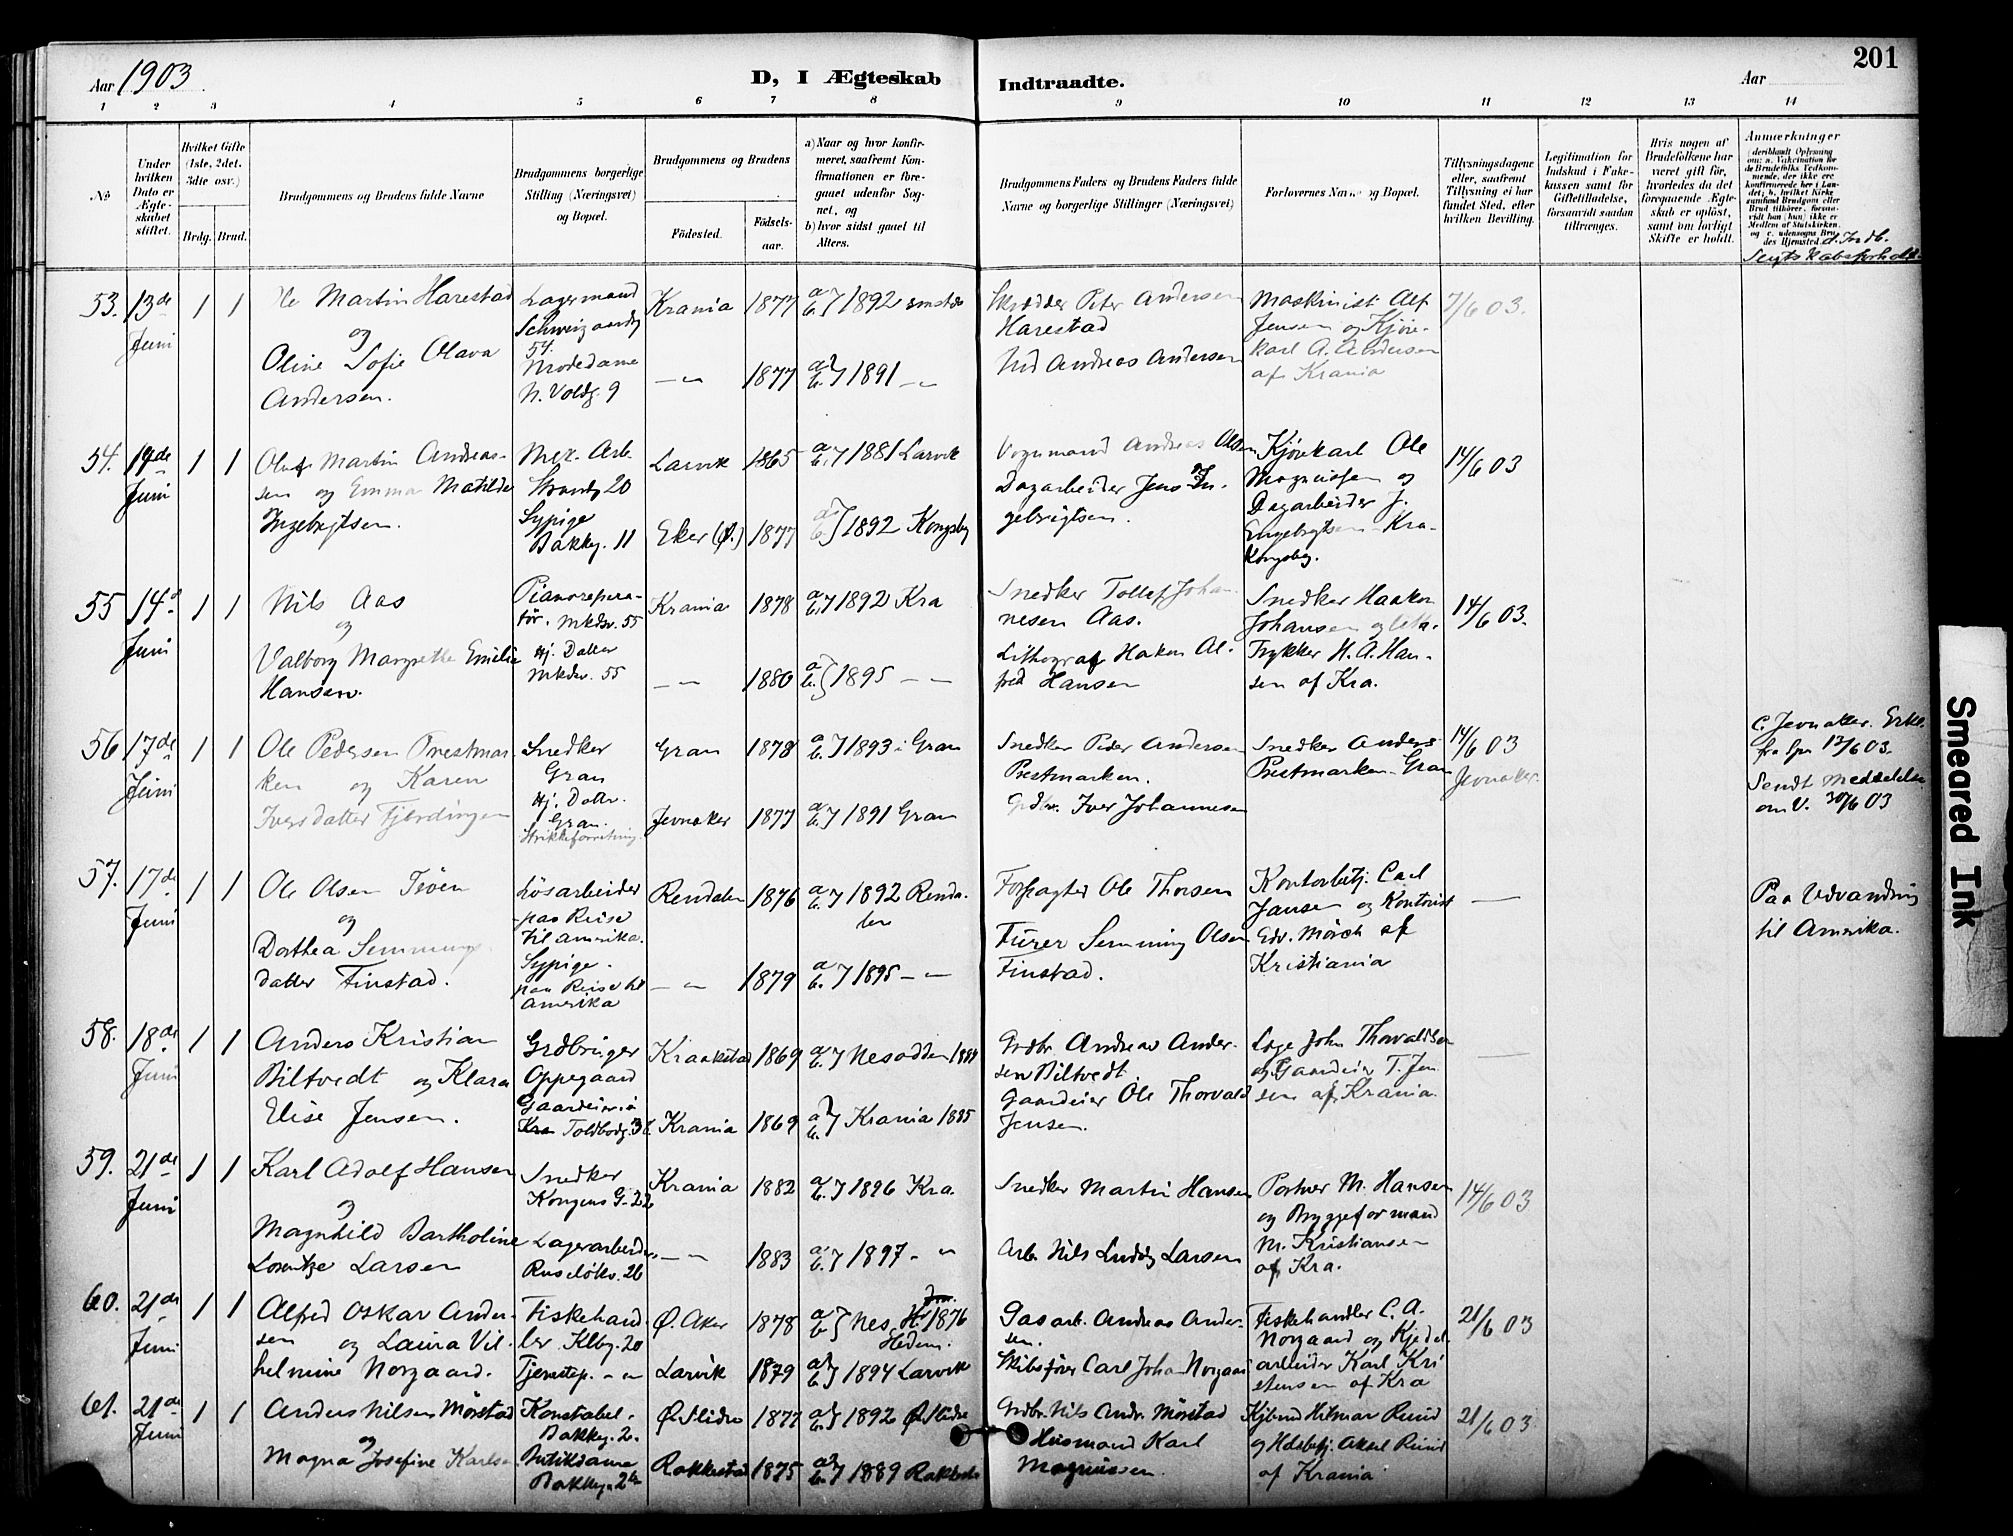 Aar 1903
D, I Ægteskab Indtraadte.
Aar
201
1 2 3 4 5 6 7 8 9 10 11 12 13 14
No.
Under hvilken Dato er Ægteskabet stiftet.
Hvilket Gifte (1ste, 2det, 3die osv.)
Brdg. Brud.
Brudgommens og Brudens fulde Navne
Brudgommens borgerlige Stilling (Næringsvei) og Bopæl.
Brudgommens og Brudens
Fødested.
Fødselsaar.
a) Naar og hvor konfirmeret, saafremt Konfirmationen er foregaaet udenfor Sognet, og
b) hvor sidst gaaet til Alters.
Brudgommens Faders og Brudens Faders fulde Navne og borgerlige Stillinger (Næringsvei)
Forlovernes Navne og Bopæl.
Tillysningsdagene eller, saafremt Tillysning ei har fundet Sted, efter hvilken Bevilling.
Legitimation for Indskud i Enkekassen samt for Giftetilladelse, forsaavidt saadan tiltrænges.
Hvis nogen af Brudefolkene har været gift før, hvorledes da det foregaaende Ægteskab er opløst, samt om lovligt Skifte er holdt.
Anmærkninger
53. 13de Juni 1 1
Ole Martin Harestad
og
Oline Sofie Olava
Andersen.
Lagermand
Schweigaardsg
54.
Modedame
N. Voldg. 9
Krania 1877 a b } 1892 smstds
—"— 1877 a b } 1891 —"—
Skrædder Peter Andersen
Harestad
Andreas Andersen
Maskinist Alf
Jensen og Kjøre-
karl A. Andersen
af Krania
7/6 03.
54. 14de Juni 1 1
Oluf Martin Andreas-
sen og Emma Matilde
Ingebrigtsen.
Mek. Arb.
Strandg 20
Sypige
Bakkg. 11
Larvik 1865 a b } 1881 Larvik
Eker (Ø.) 1877 a b } 1892 Kongsbg
Vognmand Andreas Olsen
Dagarbeider Jens In-
gebrigtsen.
Kjørekarl Ole
Magnussen og
Dagarbeider J.
Engebrigtsen - Kra-
Kongsbg.
14/6 03
55 14de Juni 1 1
Nils Aas
og
Valborg Margrethe Emilie
Hansen.
Pianorepera-
tør. Mkdsv. 55
Hj. Datter
Mkdsv. 55
Krania 1878 a b } 1892 Kra
—"— 1880 a b } 1895 —"—
Snedker Tollef Johan-
nesen Aas.
Lithograf Haken Al-
fred Hansen
Snedker Haaken
Johansen og
Trykker H. A. Han-
sen af Kra.
14/6 03.
56 17de Juni 1 1
Ole Pedersen Prestmar-
ken og Karen
Iversdatter Fjerdingen
Snedker
Gran
Hj. Datter.
Gran.
Strikkeforretning
Gran 1878 a b } 1893 i Gran
Jevnaker 1877 a b } 1891 Gran
Snedker Peder Andersen
Prestmarken.
Grdbr. Iver Johannesen
Snedker Anders
Prestmarken - Gran
14/6 03
Jevnaker.
C. Jevnaker. Erkl.
fra Spr 12/6 03.
Sendt Meddelelse
om V. 30/6 03
57. 17de Juni 1 1
Ole Olsen
og
Dorthea Semmings-
datter Finstad.
Løsarbeider
paa Reise
til Amerika.
Sypige.
paa Reise til
Amerika
Rendalen 1876 a b } 1892 Renda-
len
—"— 1879 a b } 1895 —"—
Forpagter Ole Thorsen
Semming Olsen
Finstad.
Kontorbetj. Carl
Jansen og Kontorist
Edv. Mörch af
Kristiania
—
Paa Udvandring
til Amerika.
58. 18de Juni 1 1
Anders Kristian
Biltvedt og Klara
Elise Jensen.
Grdbruger
Oppegaard
Gaardeier i
Kra Toldbodg. 36
Kraakstad 1869 a b } Nesodden 1884
Krania 1869 a b } Krania 1885
Grdbr. Andreas Ander-
sen Biltvedt.
Gaardeier Ole Thorvald
Jensen.
Læge John Thorvaldsen
og Gaardeier T. Jen-
sen af Krania.
—
59. 21de Juni 1 1
Karl Adolf Hansen
og
Magnhild Bartholine
Lorentze Larsen
Snedker
Kongens G. 22
Lagerarbeider.
Ruseløkv. 26
Krania 1882 a b } 1896 Kra.
—"— 1883 a b } 1897 - "
Snedker Martin Hansen
Arb. Nils Ludvig Larsen
Portner M. Hansen
og Bryggeformand
M. Kristiansen
af Kra.
14/6 03
60. 21de Juni 1 1
Alfred Oskar Ander-
sen og Laura Vil-
helmine Norgaard.
Fiskehand-
ler Klbg. 20
Tjenestep. —"—
Ø. Aker 1878 a b } Nes, 1876
Hedem.
Larvik 1879 a b } 1894 Larvik
Gasarb. Andreas Ander-
sen.
Skibsfører Carl Johan Norgaard
Fiskehandler C. A.
Norgaard og Kjedel-
arbeider Karl Kri-
stensen af Kra
21/6 03
61. 21de Juni 1 1
Anders Nilsen Mørstad
og
Magna Josefine Karlsen
Konstabel.
Bakkg. 2.
Butikdame
Bakkg. 2
Ø. Slidre 1877 a b } 1892 Ø. Slidre
Rakkestad 1875 a b } 1889 Rakkestd
Grdbr. Nils Andr. Mørstad
Husmand Karl
Magnussen.
Kjbmd Hilmar Ruud
og Aksel Ruud
af Krania
21/6 03
Smeared Ink